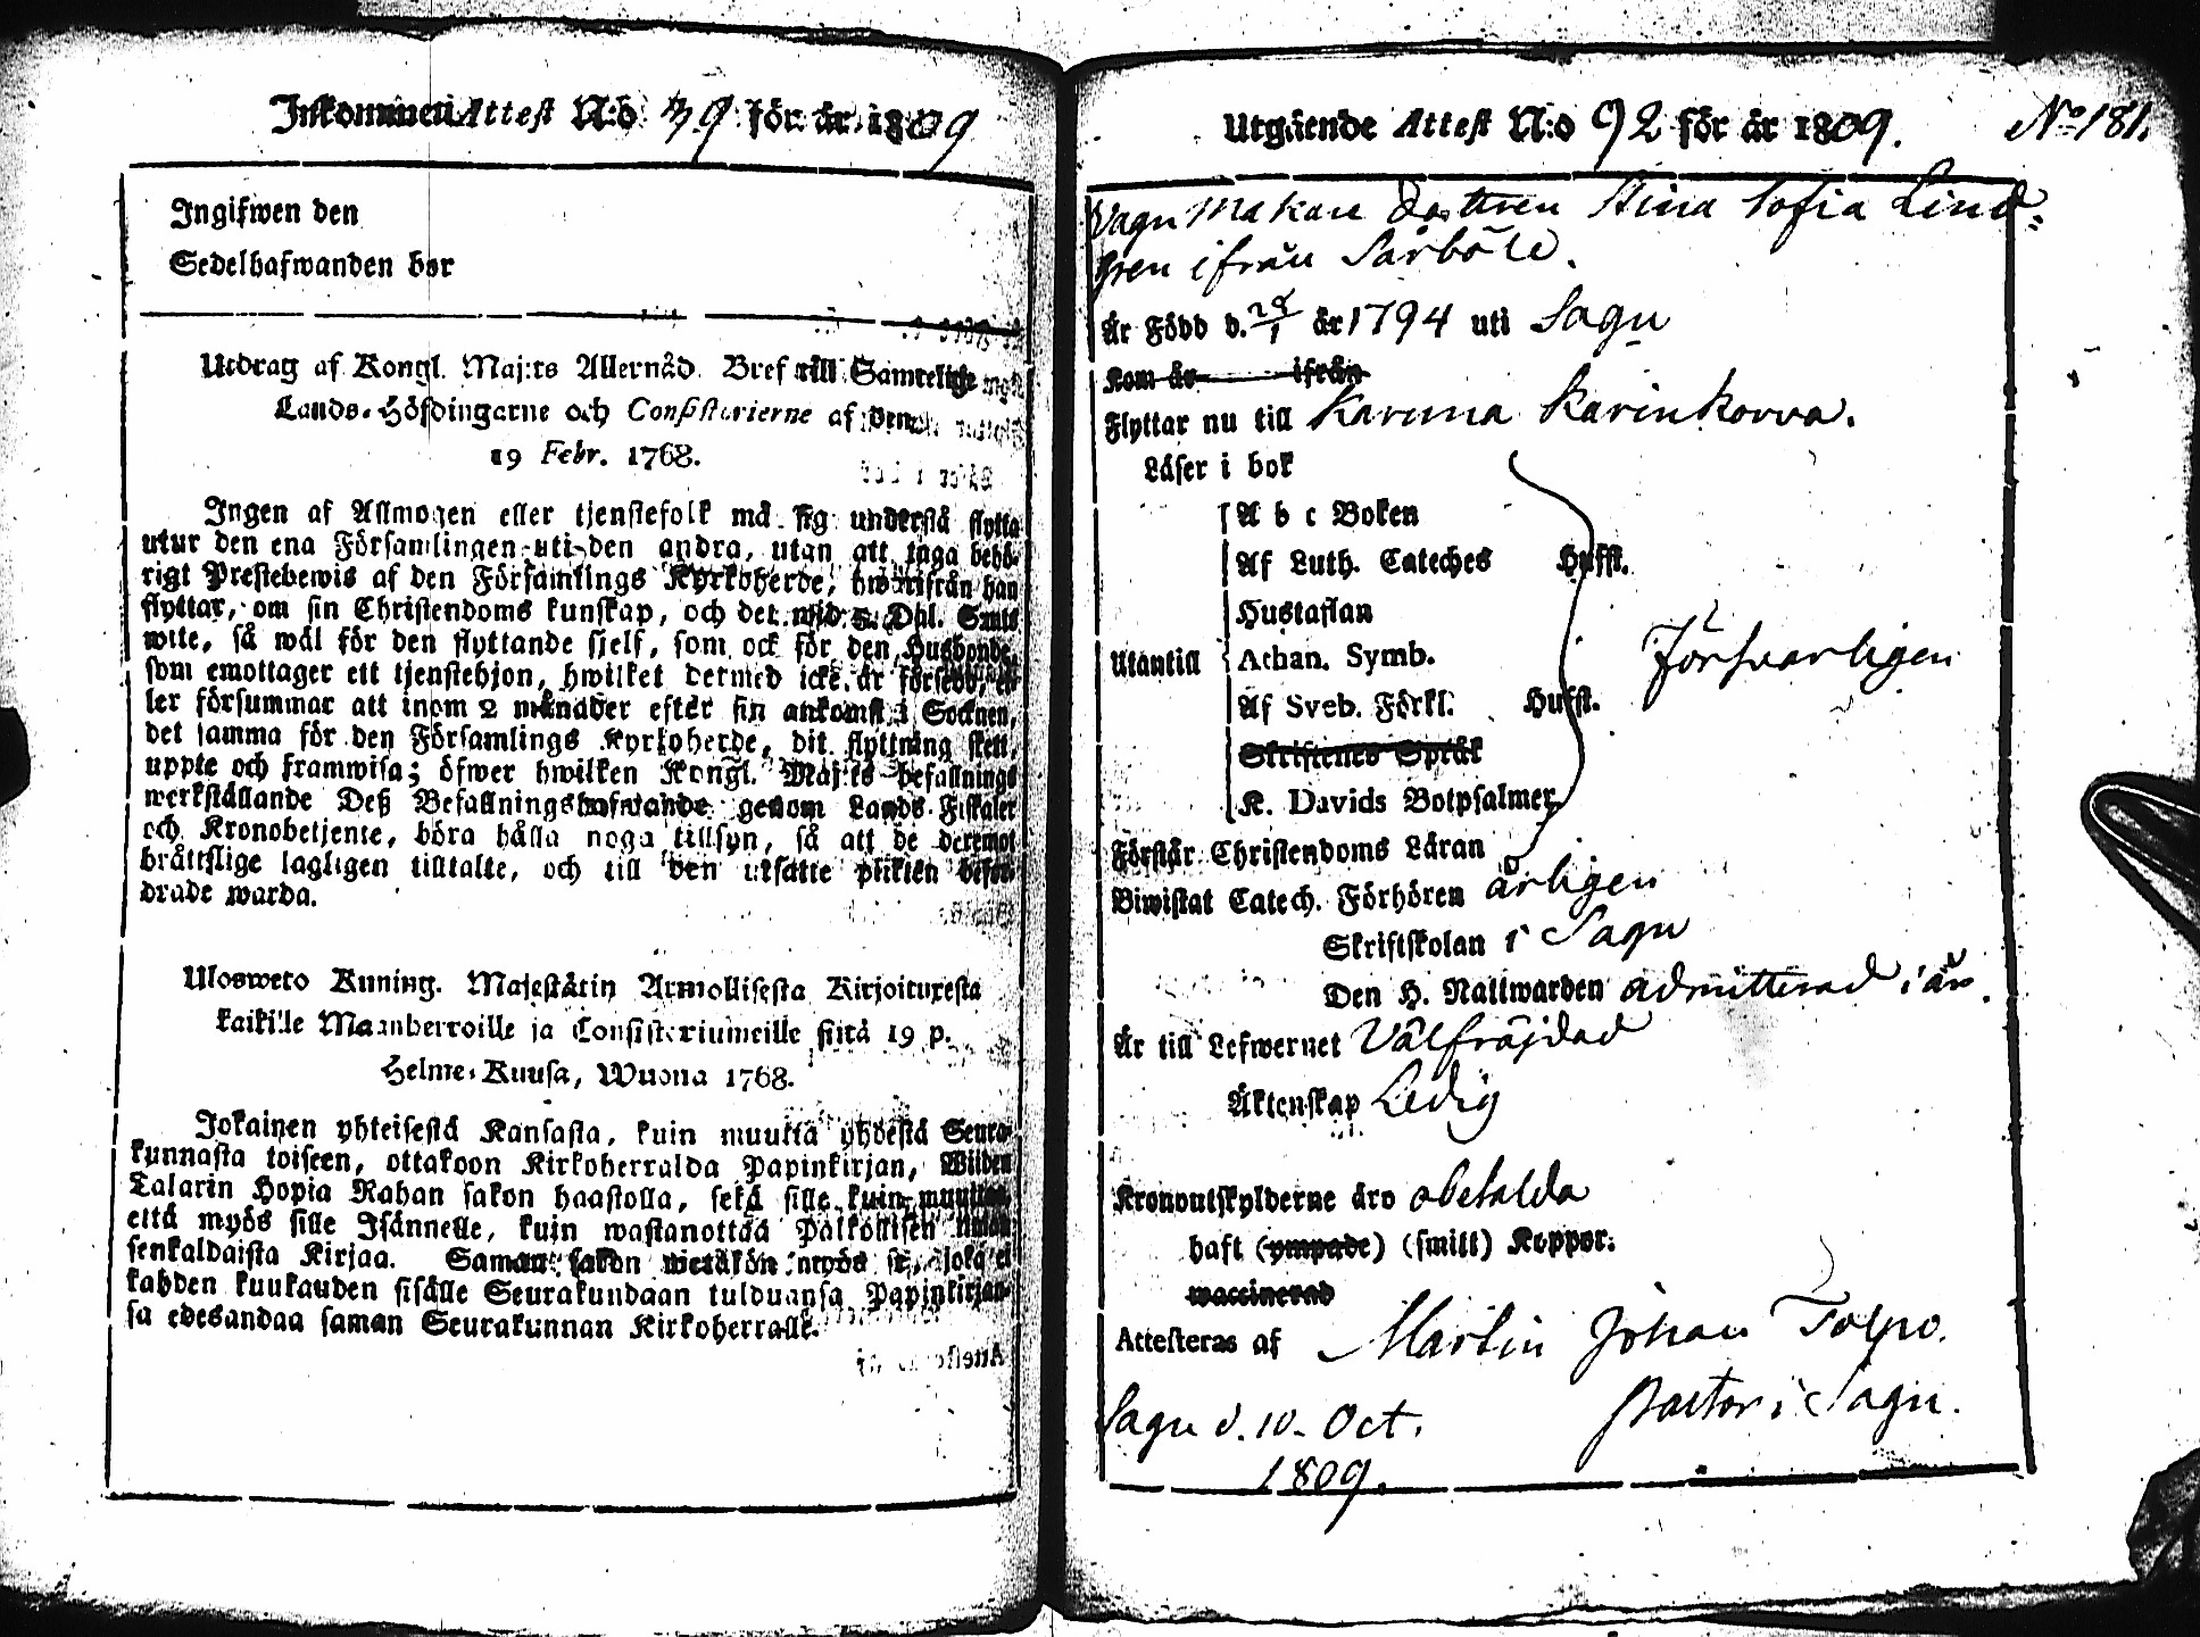 Inkommen Attest N:o 39 för år 1809
Ingifwen den
Sedelhafwanden bor
Utdrag af Kongl. Maj:ts Allernåd. Bref till Samtelige
Lands-Höfdingarne och Consistorierne af den
19 Febr. 1768.
Ingen af Allmogen eller tjenstefolk må sig understå flytta
utur den ena Församlingen uti den andra, utan att taga behö-
rigt Prestebewis af den Församlings Kyrkoherde, hwarifrån han
flyttar, om sin Christendoms kunskap, och det wid 5 Dal. Smts
wite, så wäl för den flyttande sjelf, som ock för den Husbonde,
som emottager ett tjenstehjon, hwilket dermed icke är försedt, el-
ler försummar att inom 2 månader efter sin ankomst i Socknen,
det samma för den Församlings Kyrkoherde, dit flyttning skett,
uppte och framwisa; öfwer hwilken Kongl. Maj:ts befallnings
werkställande Deß Befallningshafwande genom Lands-Fiskaler
och Kronobetjente, böra hålla noga tillsyn, så att de deremot
bråttslige lagligen tilltalte, och till den utsatte plikten befor-
drade warda.
Ulosweto Kuning. Majestätin Armollisesta Kirjoituxesta
kaikille Maanherroille ja Consistoriumeille siitä 19 p.
Helme-Kuusa, Wuona 1768.
Jokainen yhteisestä Kansasta, kuin muutta yhdestä Seura-
kunnasta toiseen, ottakoon Kirkoherralda Papinkirjan, Wiiden
Talarin Hopia Rahan sakon haastolla, sekä sille kuin muuttaa,
että myös sille Isännelle, kuin wastanottaa Palkollisen ilman
senkaldaista Kirjaa. Saman sakon wetäkön myös se, joka ei
kahden kuukauden sisälle Seurakundaan tulduansa Papinkirjan-
sa edesandaa saman Seurakunnan Kirkoherralle.
Utgående Attest N:o 92 för år 1809. No 181.
Vagnmakare dottren Stina Sofia Lind-
gren ifrån Sårböle.
Är Född d. 28/1 år 1794 uti Sagu
Kom år ifrån
Flyttar nu till Karuna Karinkorva.
Läser i bok
A b c Boken
Af Luth. Cateches Hufst.
Hustaflan
Utantill Athan. Symb. Försvarligen
Af Sveb. Förkl. Hufst.
Skriftenes Språk
K. Davids Botpsalmer
Förstår Christendoms Läran
Biwistat Catech. Förhören årligen
Skriftskolan i Sagu
Den H. Nattwarden admitterad i år.
Är till Lefwernet Välfräjdad
Äktenskap Ledig
Kronoutskylderne äro obetalda
haft (ympade) (smitt) Koppor.
waccinerad
Attesteras af Martin Johan Tolpo.
Pastor i Sagu.
Sagu d. 10. Oct.
1809.